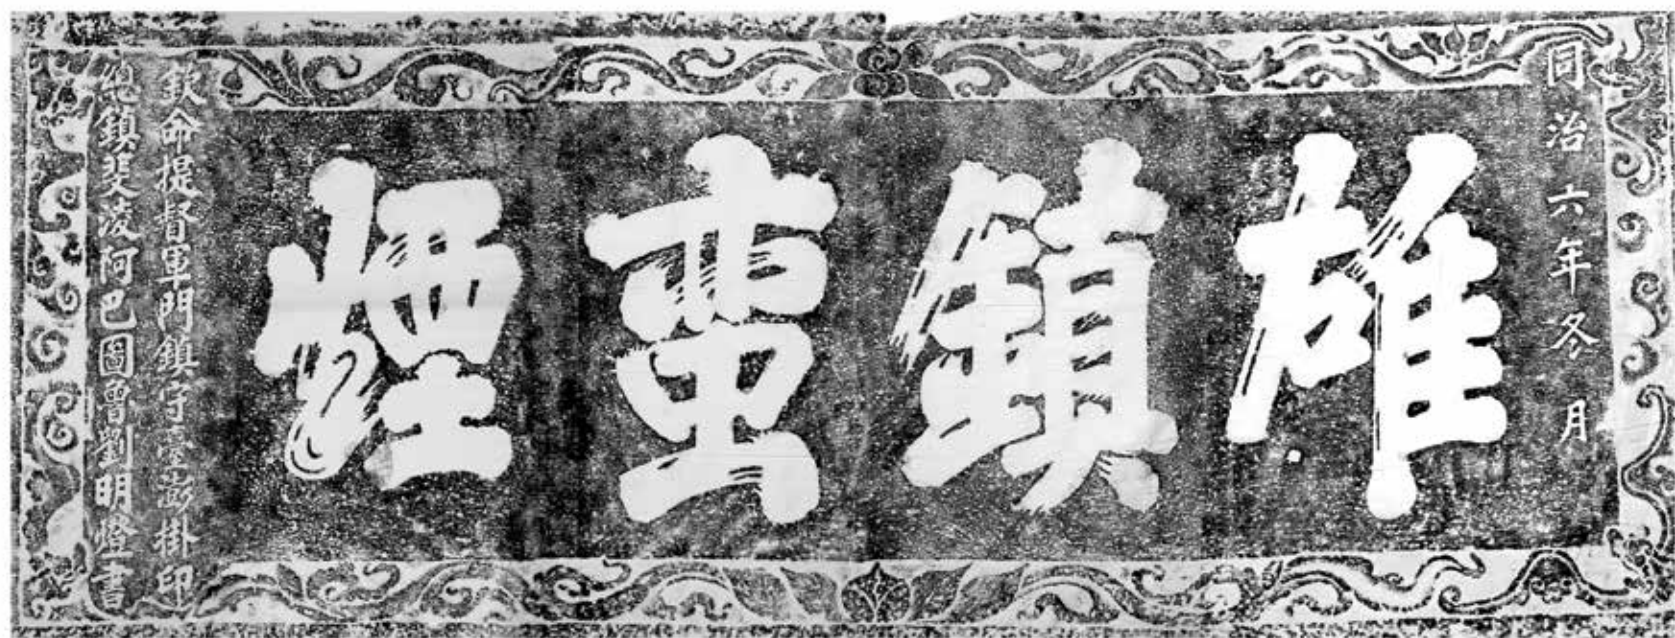 同治六年冬月
雄鎮蠻煙
欽命提督軍門鎮守臺澎掛印
總鎮斐淩阿巴圖魯劉明燈書